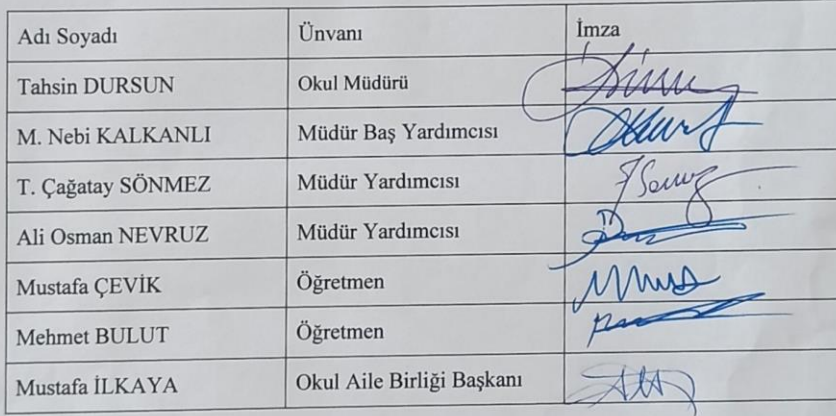 Adı Soyadı Ünvanı İmza
Tahsin DURSUN Okul Müdürü
M. Nebi KALKANLI Müdür Baş Yardımcısı
T. Çağatay SÖNMEZ Müdür Yardımcısı
Ali Osman NEVRUZ Müdür Yardımcısı
Mustafa ÇEVİK Öğretmen
Mehmet BULUT Öğretmen
Mustafa İLKAYA Okul Aile Birliği Başkanı